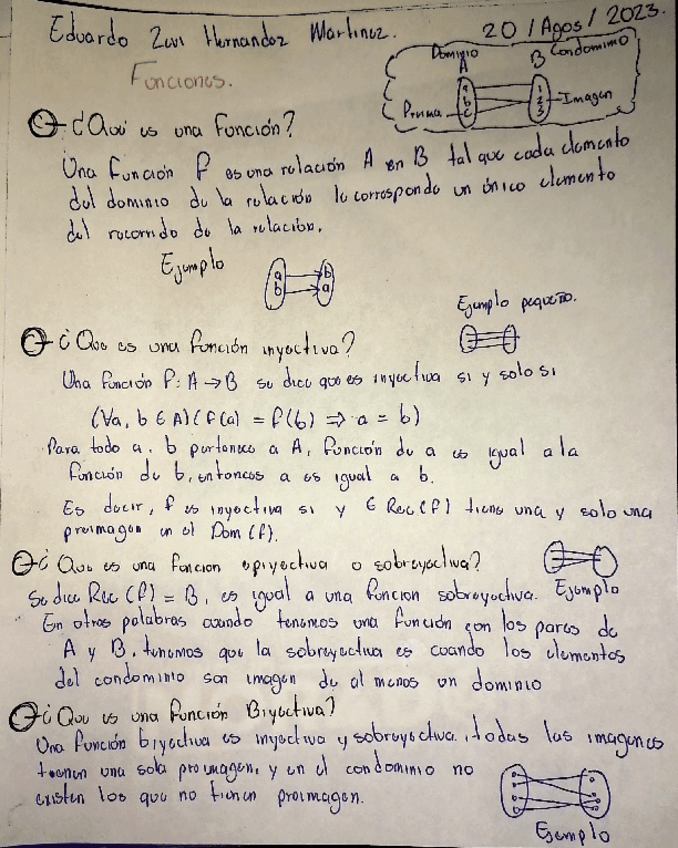 Eduardo Zuri Hernandez Martinez.
20 / Agos / 2023.
Funciones.
Dominio
A
B
Condominio
a
b
c
1
2
3
Preima.
Imagen
¿Que es una función?
Una función f es una relación A en B tal que cada elemento
del dominio de la relación le corresponde un único elemento
del recorrido de la relación.
Ejemplo
a
b
b
a
Ejemplo pequeño.
¿Que es una función inyectiva?
Una función f: A → B se dice que es inyectiva si y solo si
(∀a, b ∈ A)(f(a) = f(b) ⇒ a = b)
Para todo a, b pertenece a A, función de a es igual a la
función de b, entonces a es igual a b.
Es decir, f es inyectiva si y ∈ Rec(f) tiene una y solo una
preimagen en el Dom (f).
¿Que es una función epiyectiva o sobreyectiva?
Se dice Rec (f) = B, es igual a una función sobreyectiva.
Ejemplo
En otras palabras cuando tenemos una función con los pares de
A y B, tenemos que la sobreyectiva es cuando los elementos
del condominio son imagen de al menos un dominio
¿Que es una función Biyectiva?
Una función biyectiva es inyectiva y sobreyectiva, todas las imagenes
tienen una sola preimagen, y en el condominio no
existen los que no tienen preimagen.
Ejemplo